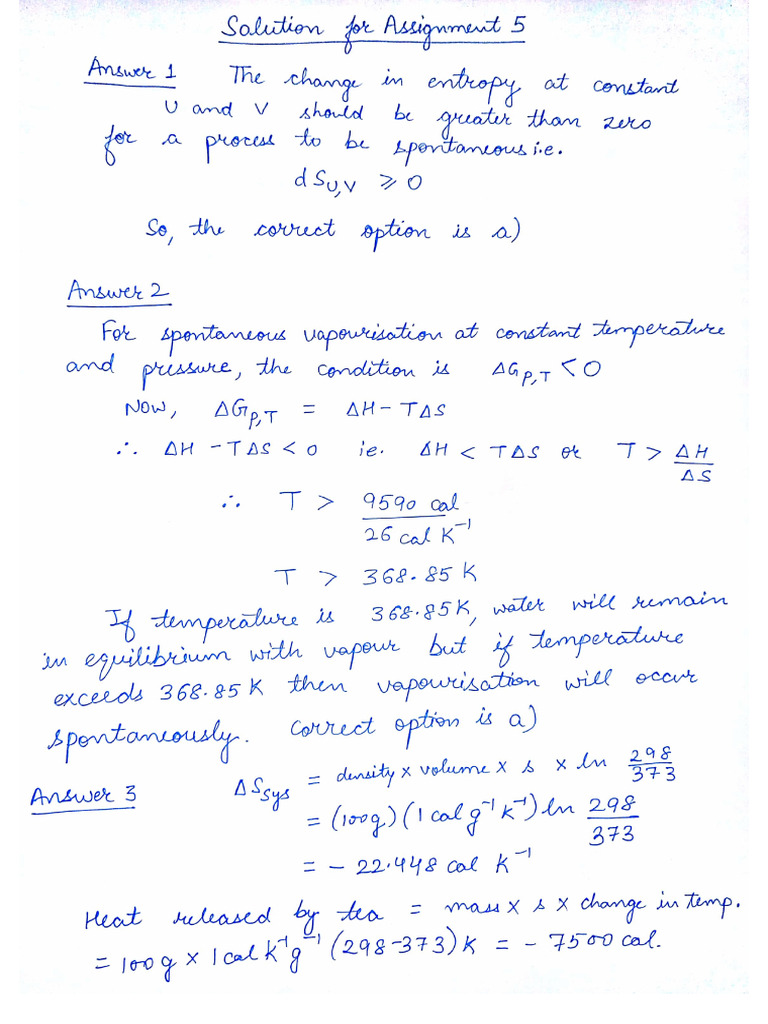 Solution for Assignment 5
Answer 1 The change in entropy at constant
U and V should be greater than zero
for a process to be spontaneous i.e.
dS_{U,V} ⩾ 0
So, the correct option is a)
Answer 2
For spontaneous vapourisation at constant temperature
and pressure, the condition is ΔG_{P,T} < 0
Now, ΔG_{P,T} = ΔH - TΔS
∴ ΔH - TΔS < 0 ie. ΔH < TΔS or T > ΔH/ΔS
∴ T > 9590 cal/26 cal K⁻¹
T > 368.85 K
If temperature is 368.85K, water will remain
in equilibrium with vapour but if temperature
exceeds 368.85 K then vapourisation will occur
spontaneously. Correct option is a)
Answer 3 ΔS_{sys} = density x volume x s x ln 298/373
= (100g) (1 cal g⁻¹ K⁻¹) ln 298/373
= - 22.448 cal K⁻¹
Heat released by tea = mass x s x change in temp.
= 100g x 1 cal K⁻¹ g⁻¹ (298-373) K = - 7500 cal.